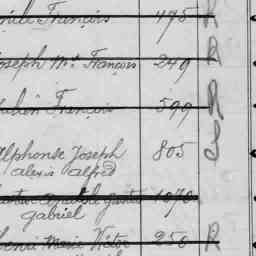 François 495 R
Joseph Me François 249 R
François 599 R
Alphonse Joseph 805 S
alexis alfred
1070
gabriel
Henri Marie Victor 250 R